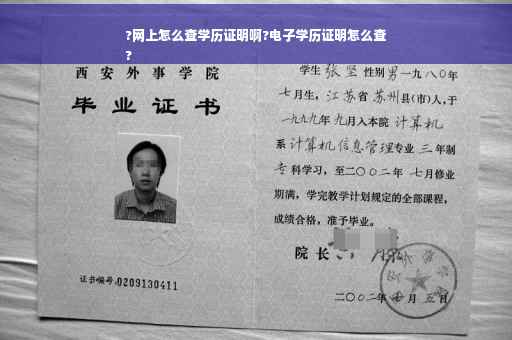 ?网上怎么查学历证明啊?电子学历证明怎么查
?
西安外事学院
毕业证书
证书编号:0209130411
学生 张坚 性别男一九八〇年
七月生，江苏省 苏州县(市)人,于
一九九九年 九月入本院 计算机
系 计算机信息管理专业 三 年制
专 科学习，至二〇〇二年 七月修业
期满，学完教学计划规定的全部课程，
成绩合格，准予毕业。
院 长
二〇〇二年 月 五日